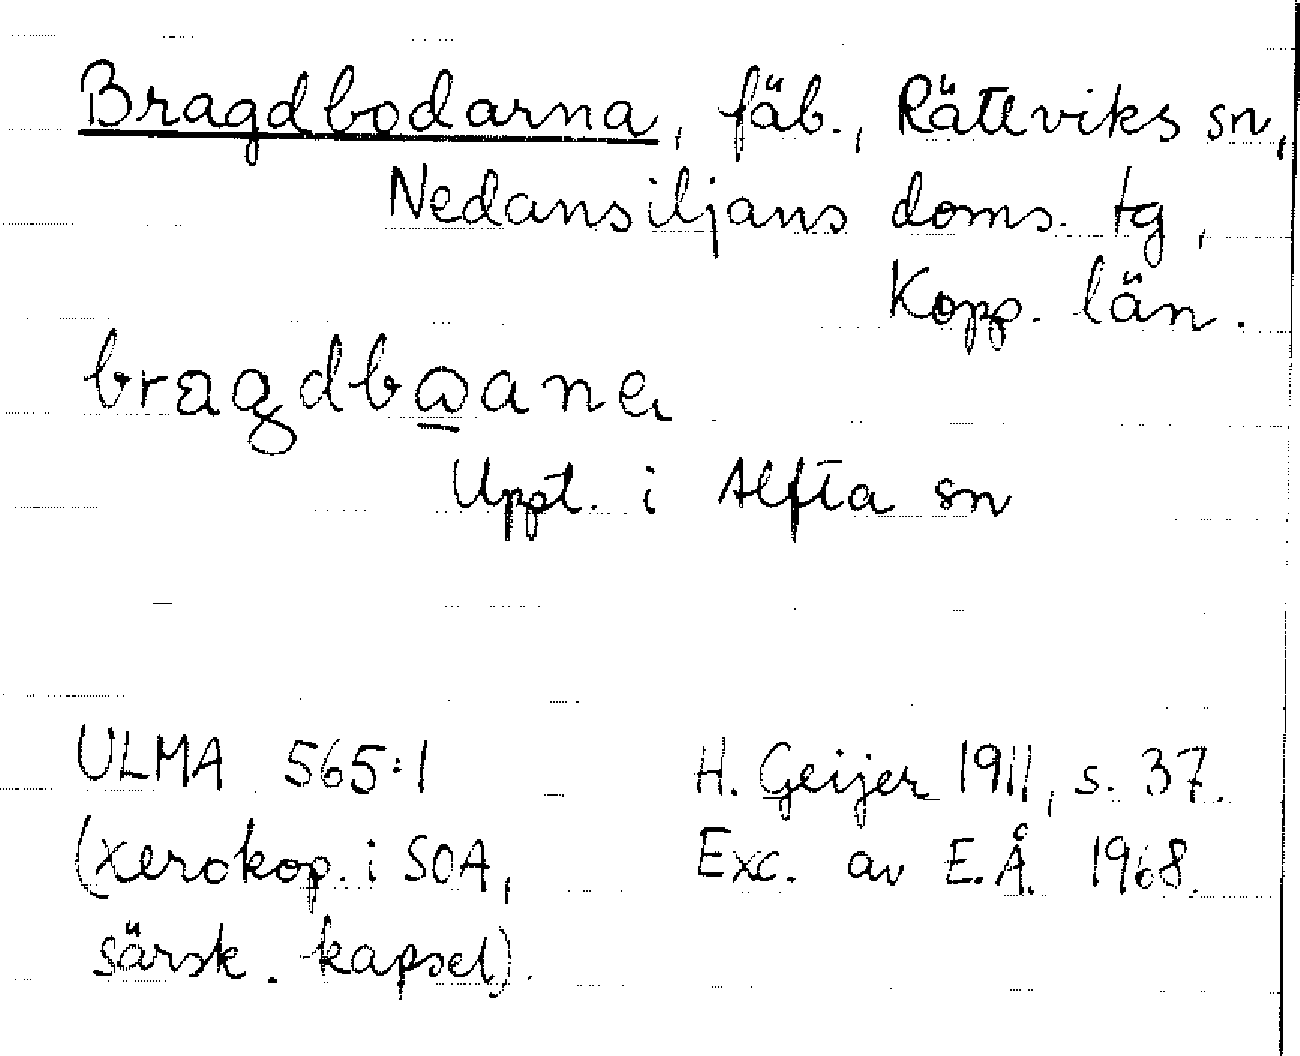 Bragdbodarna, fäb., Rättviks sn,
Nedansiljans doms. tg,
Kopp. län.
bragdbωanα
Uppt. i Alfta sn
ULMA 565:1
H. Geijer 1911, s. 37.
(xerokop. i SOA,
Exc. av E.Å. 1968.
särsk. kapsel).